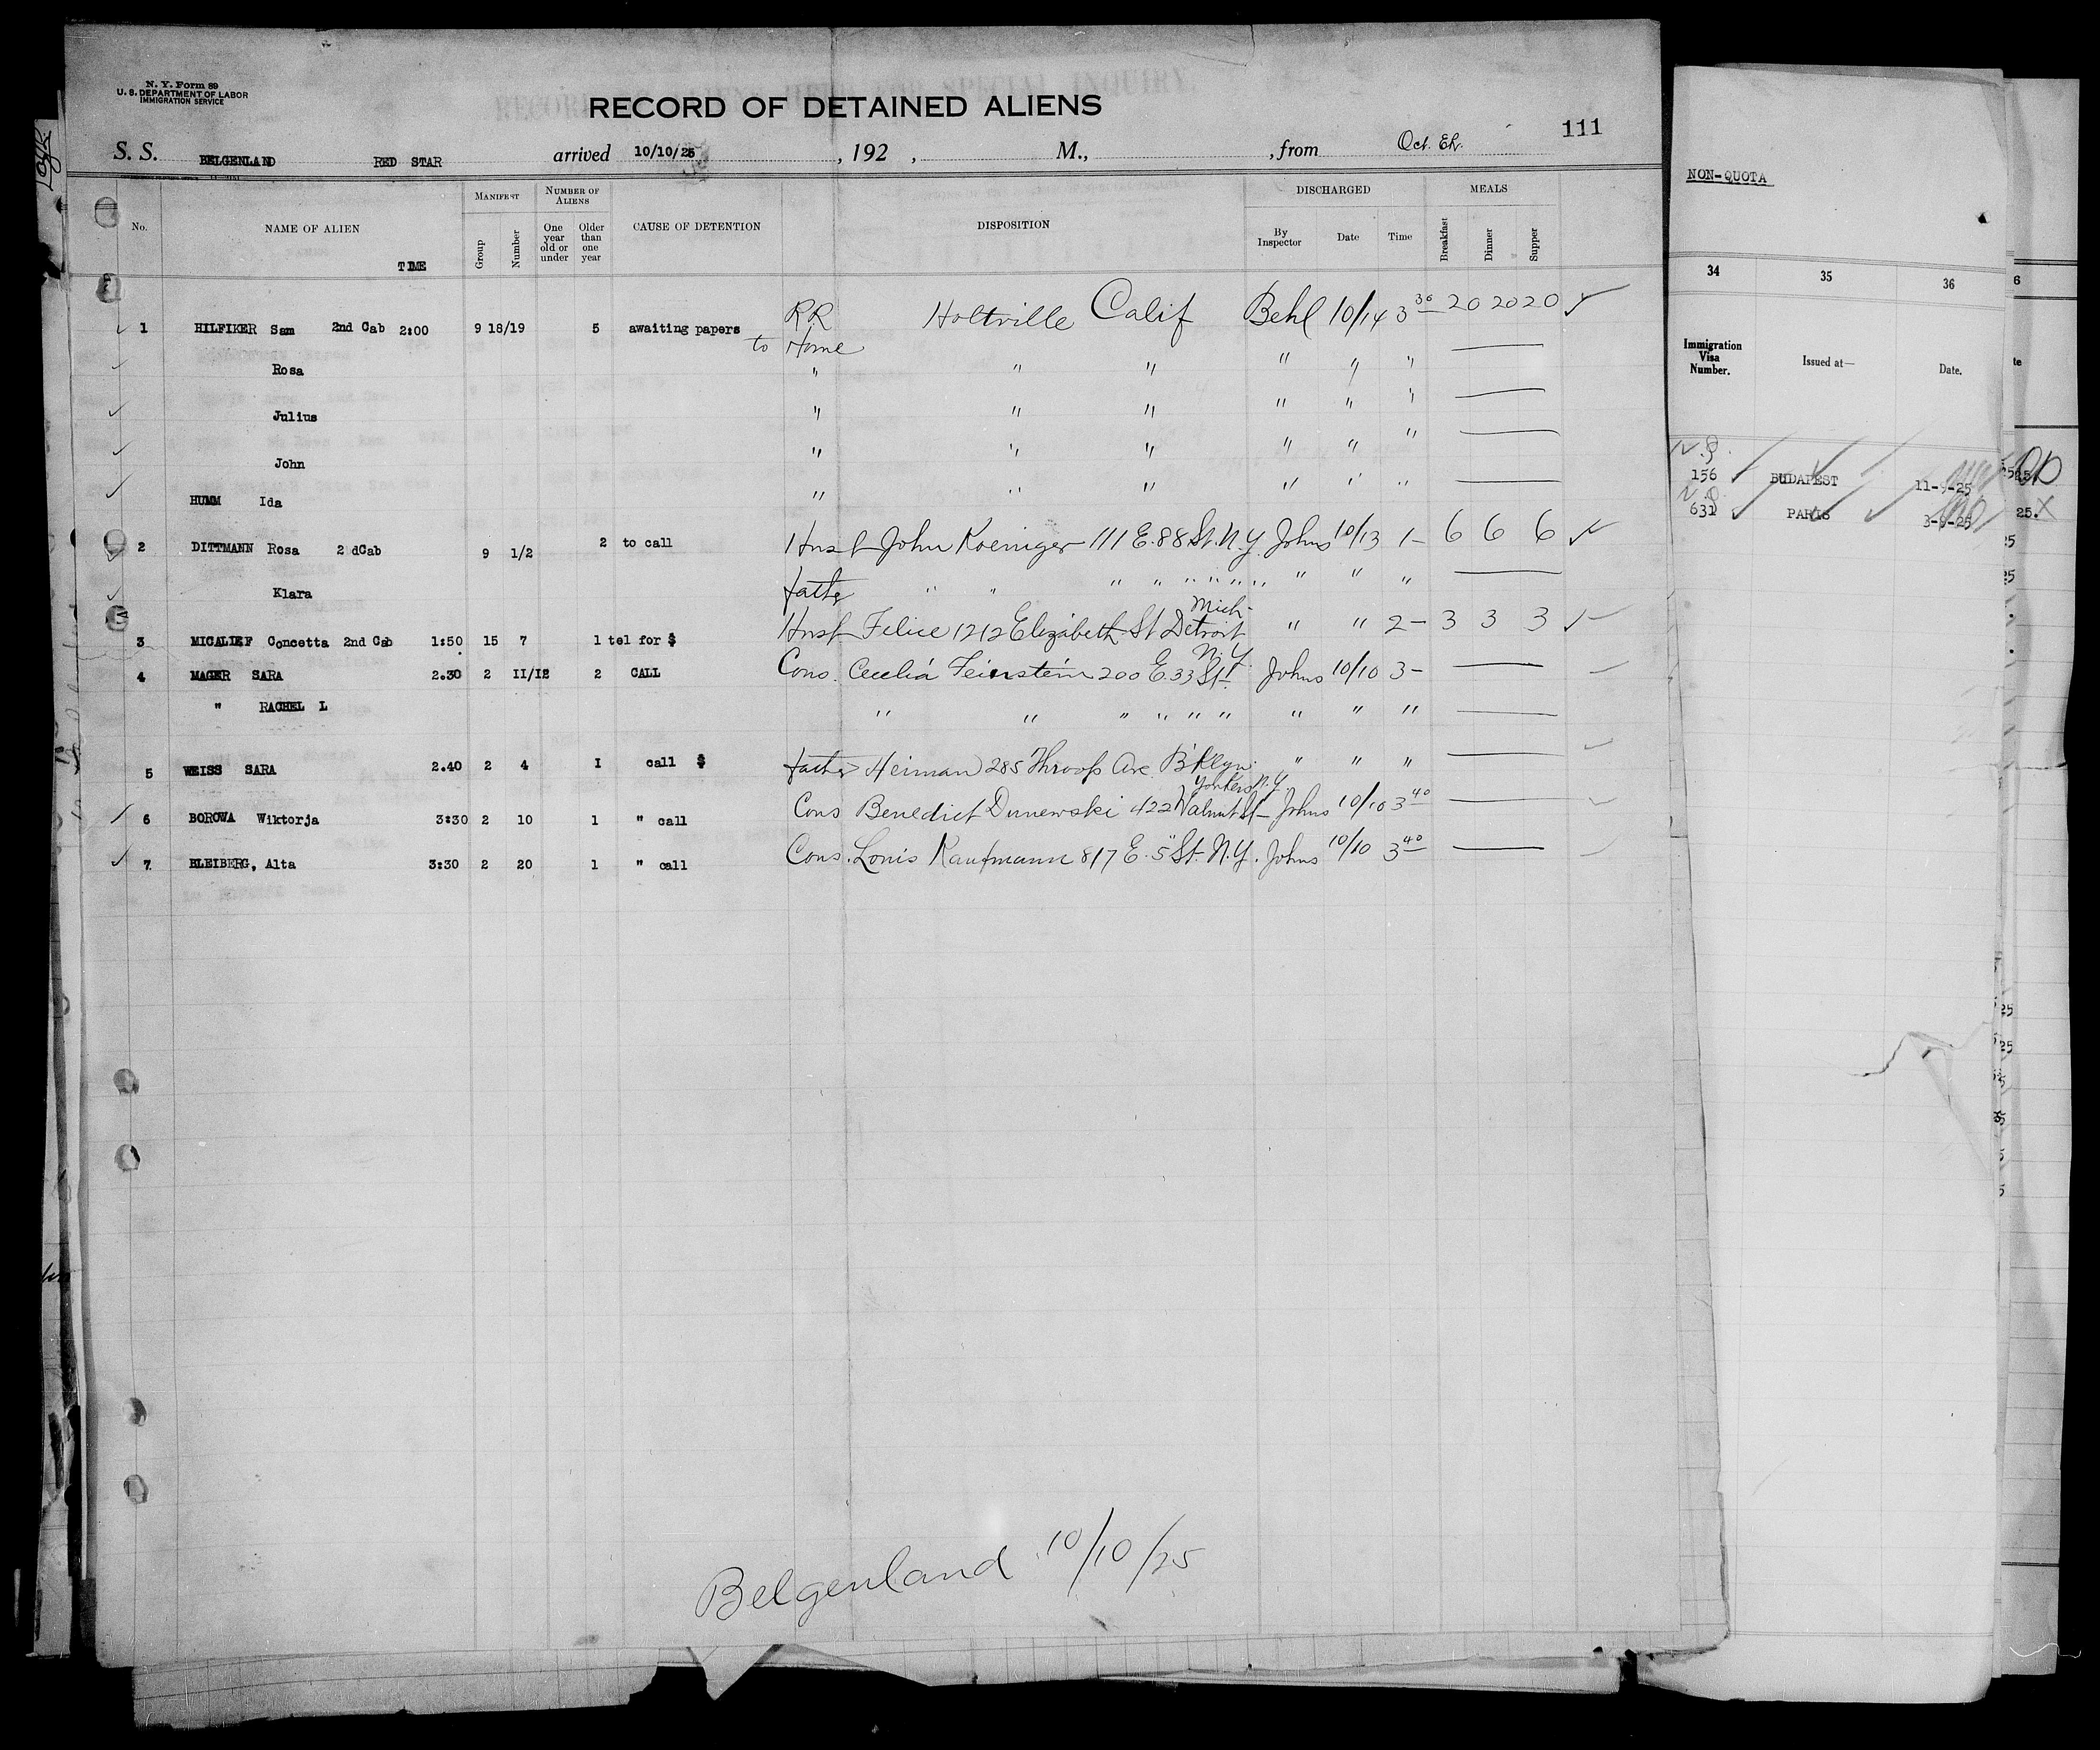 N. Y. Form 89
U. S. DEPARTMENT OF LABOR
IMMIGRATION SERVICE
RECORD OF DETAINED ALIENS
111
S. S. BELGENLAND RED STAR arrived 10/10/25, 192 , M., , from Oct. Eh.
No. NAME OF ALIEN TIME MANIFEST Group Number NUMBER OF ALIENS One year old or under Older than one year CAUSE OF DETENTION DISPOSITION DISCHARGED By Inspector Date Time MEALS Breakfast Dinner Supper
1 HILFIKER Sam 2nd Cab 2:00 9 18/19 5 awaiting papers RR Holtville Calif Behl 10/14 3 30 20 20 20 ✓
to Home
Rosa " " " " " "
Julius " " " " " "
John " " " " " "
HUMM Ida " " " " " "
2 DITTMANN Rosa 2 dCab 9 1/2 2 to call Husb John Koeniger 111 E. 88 St. N.Y. Johns 10/13 1- 6 6 6 ✓
Klara father " " " " " " " " " " "
Mich-
3 MICALIEF Concetta 2nd Cab 1:50 15 7 1 tel for $ Husb Felice 1212 Elizabeth St Detroit " " 2- 3 3 3 ✓
N.Y.
4 MAGER SARA 2.30 2 II/I2 2 CALL Cons. Cecelia Feinstein 200 E. 33 St. Johns 10/10 3-
" RACHEL L " " " " " " " " "
5 WEISS SARA 2.40 2 4 I call $ father Heiman 285 Throop Ave. B'klyn. " " "
Yonkers N.Y.
6 BOROWA Wiktorja 3:30 2 10 1 " call Cons Benedict Dunewski 422 Walnut St- Johns 10/10 3 40
7 BLEIBERG, Alta 3:30 2 20 1 " call Cons. Louis Kaufmann 817 E. 5" St. N.Y. Johns 10/10 3 40
Belgenland 10/10/25
NON-QUOTA
34 35 36
Immigration Visa Number. Issued at— Date.
156 BUDAPEST
631 PARIS